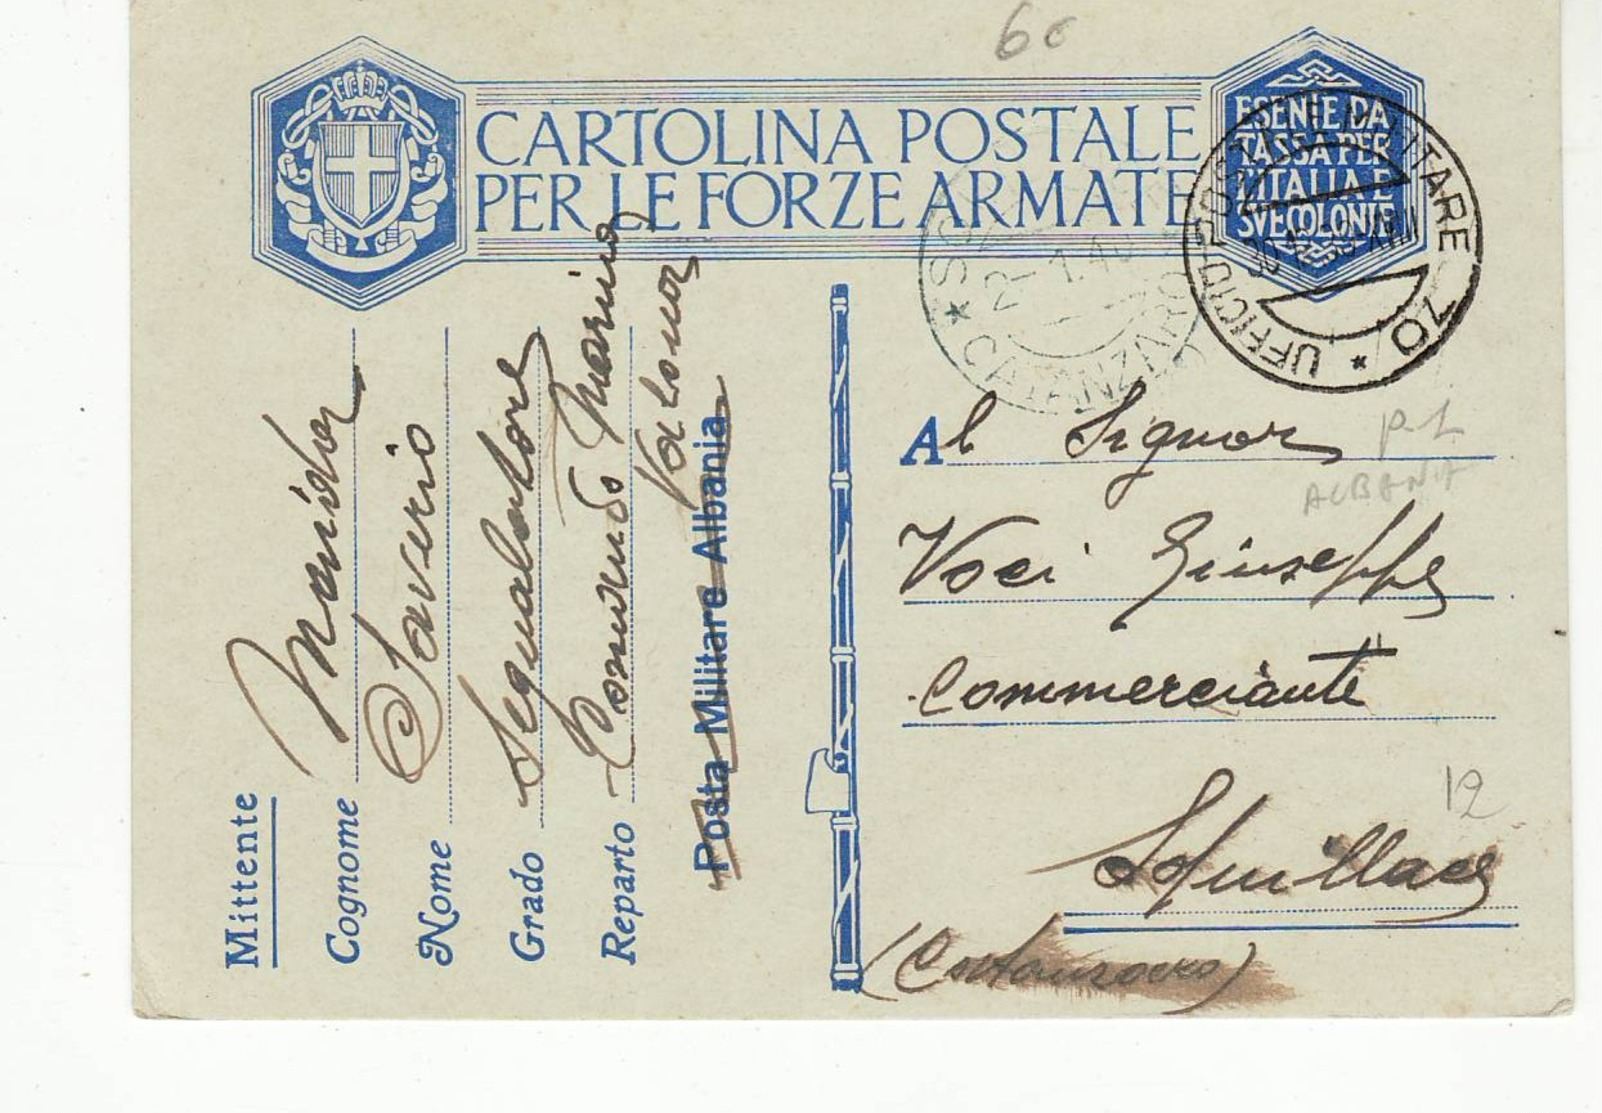 6c
CARTOLINA POSTALE
PER LE FORZE ARMATE
ESENTE DA
TASSA PER
L'ITALIA E
SVE COLONIE
UFFICIO POSTALE MILITARE 70 *
CATANZARO
Al Signor
P.L
ALBANIA
Voci Giuseppe
Commerciante
12
Squillace
(Catanzaro)
Mittente
Cognome
Nome Saverio
Grado Segnalatore
Reparto Comando Marina
Valona
Posta Militare Albania